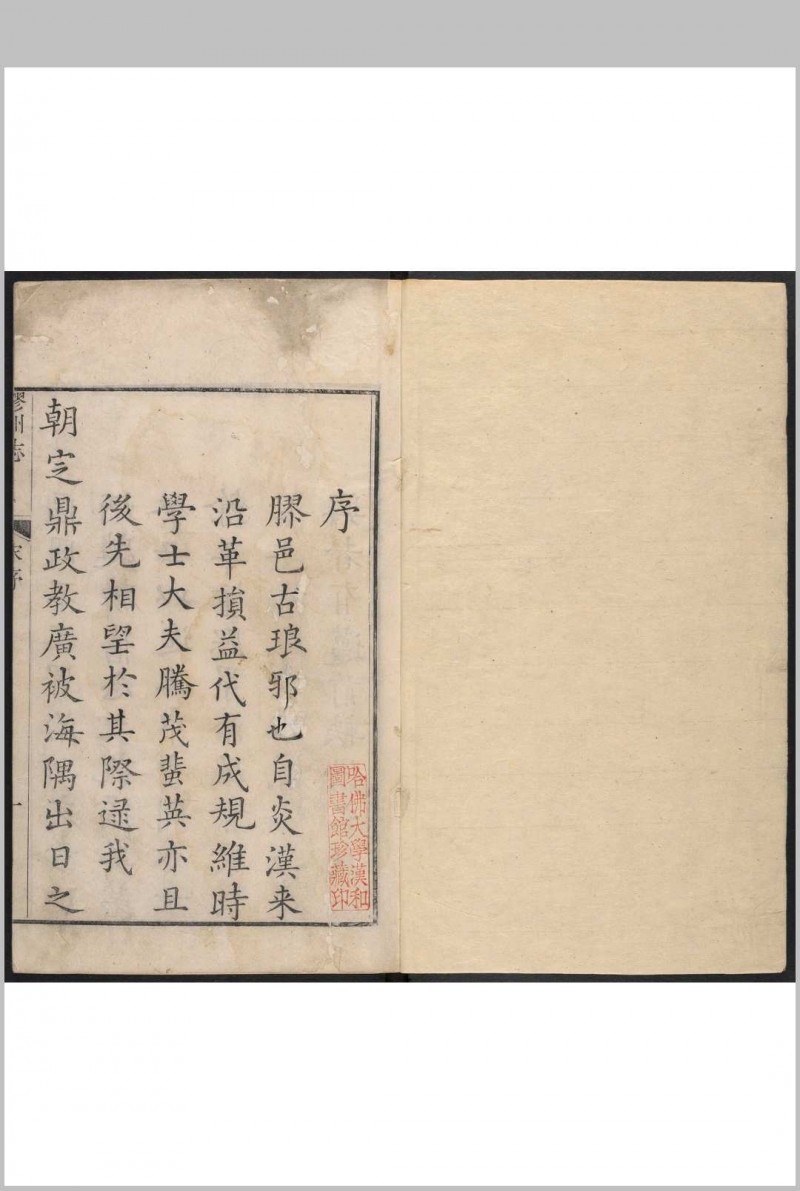 序
膠邑古琅邪也自炎漢来
沿革損益代有成規維時
學士大夫騰茂蜚英亦且
後先相望扵其際逯我
朝㝎鼎政教廣被海隅出日之
膠州志
宋序
一
哈佛大學漢和
圖書館珍藏印